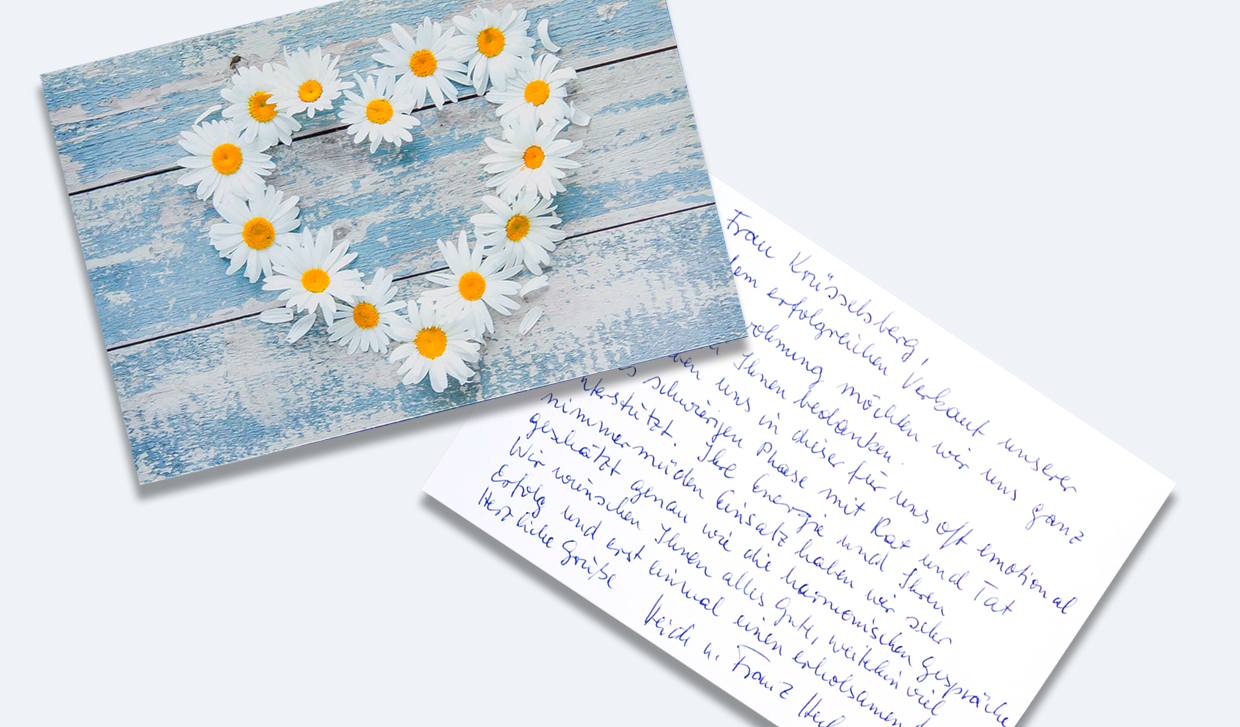 Frau Krüsselsberg,
dem erfolgreichen Verkauf unserer
ohnung möchten wir uns ganz
Ihnen bedanken.
ben uns in dieser für uns oft emotional
schwierigen Phase mit Rat und Tat
nterstützt. Ihre Energie und Ihren
nimmermüden Einsatz haben wir sehr
geschätzt genau wie die harmonischen Gespräche
Wir wünschen Ihnen alles Gute, weiterhin viel
Erfolg und erst einmal einen erholsamen
Herzliche Grüße
Heidi u. Franz